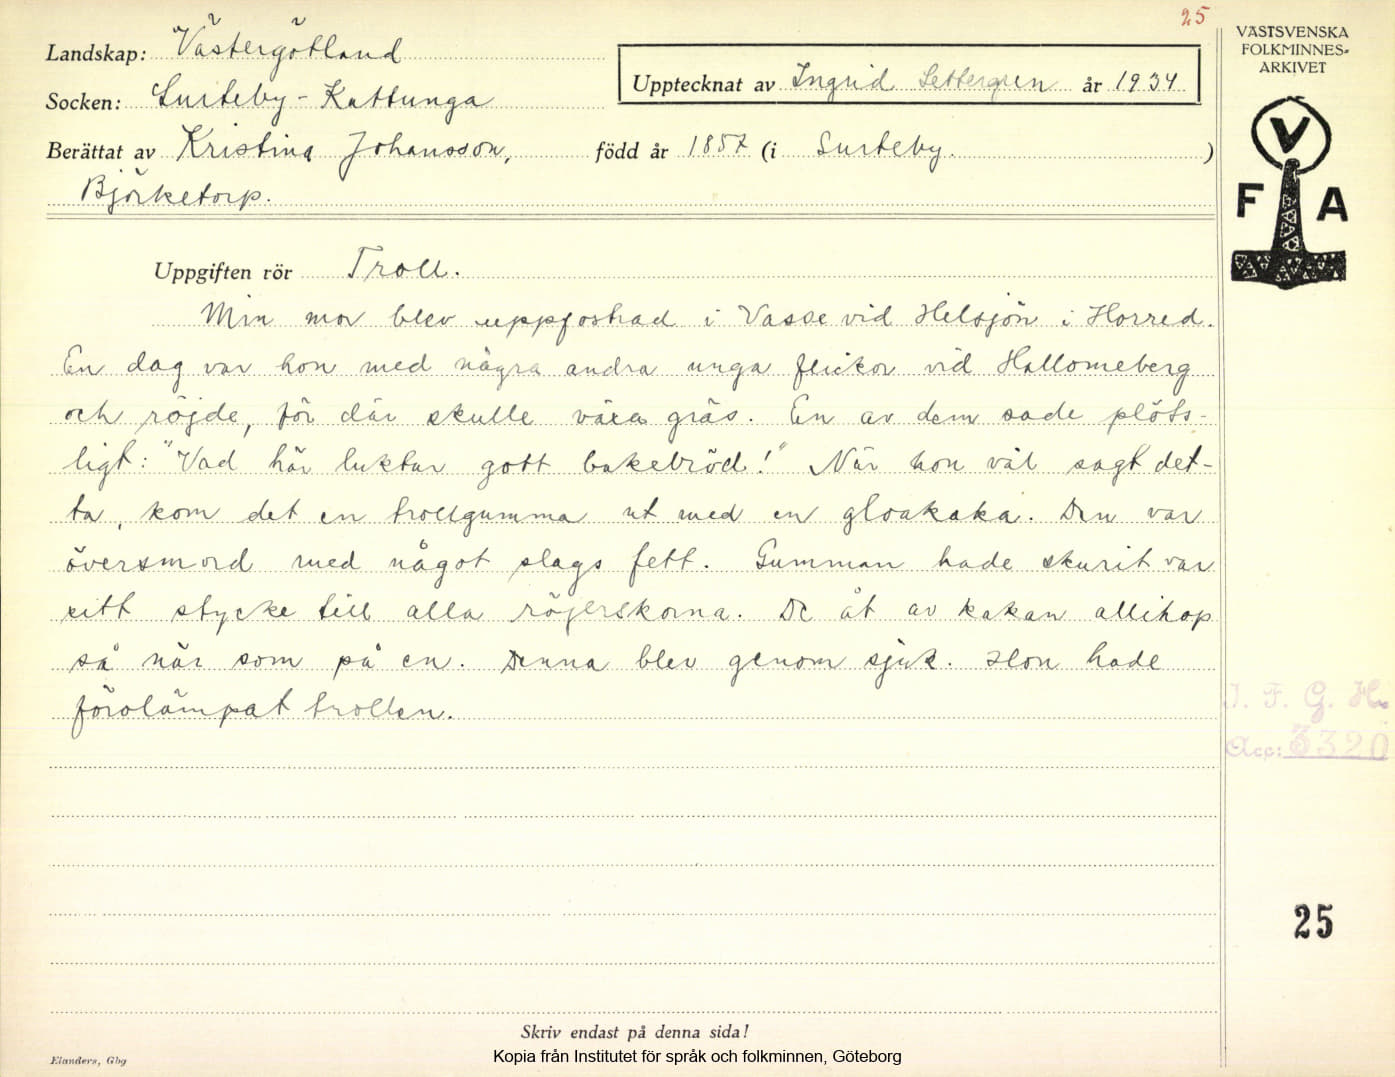 25
Landskap: Västergötland
Socken: Surteby-Kattunga
Upptecknat av Ingrid Settergren år 1934
Berättat av Kristina Johansson, född år 1857 (i Surteby.)
Björketorp.
VÄSTSVENSKA
FOLKMINNES-
ARKIVET
V
F A
Uppgiften rör Troll.
Min mor blev uppfostrad i Vasse vid Helsjön i Horred.
En dag var hon med några andra unga flickor vid Hallomeberg
och röjde, för där skulle växa gräs. En av dem sade plöts-
ligt: "Vad här luktar gott bakebröd!" När hon väl sagt det-
ta, kom det en trollgumma ut med en gloakaka. Den var
översmord med något slags fett. Gumman hade skurit var
sitt stycke till alla röjerskorna. De åt av kakan allihop
så när som på en. Denna blev genom sjuk. Hon hade
förolämpat trollen.
I. F. G. H.
Acc: 3320
25
Skriv endast på denna sida!
Elanders, Gbg
Kopia från Institutet för språk och folkminnen, Göteborg